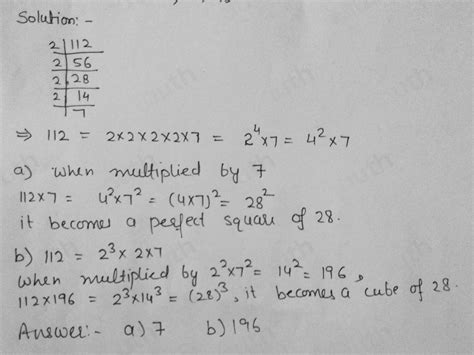 Solution:-
2|112
2|56
2|28
2|14
7
⇒ 112 = 2×2×2×2×7 = 2⁴×7 = 4²×7
a) when multiplied by 7
112×7 = 4²×7² = (4×7)² = 28²
it becomes a perfect square of 28.
b) 112 = 2³×2×7
when multiplied by 2²×7² = 14² = 196,
112×196 = 2³×14³ = (28)³, it becomes a cube of 28.
Answer:- a) 7 b) 196